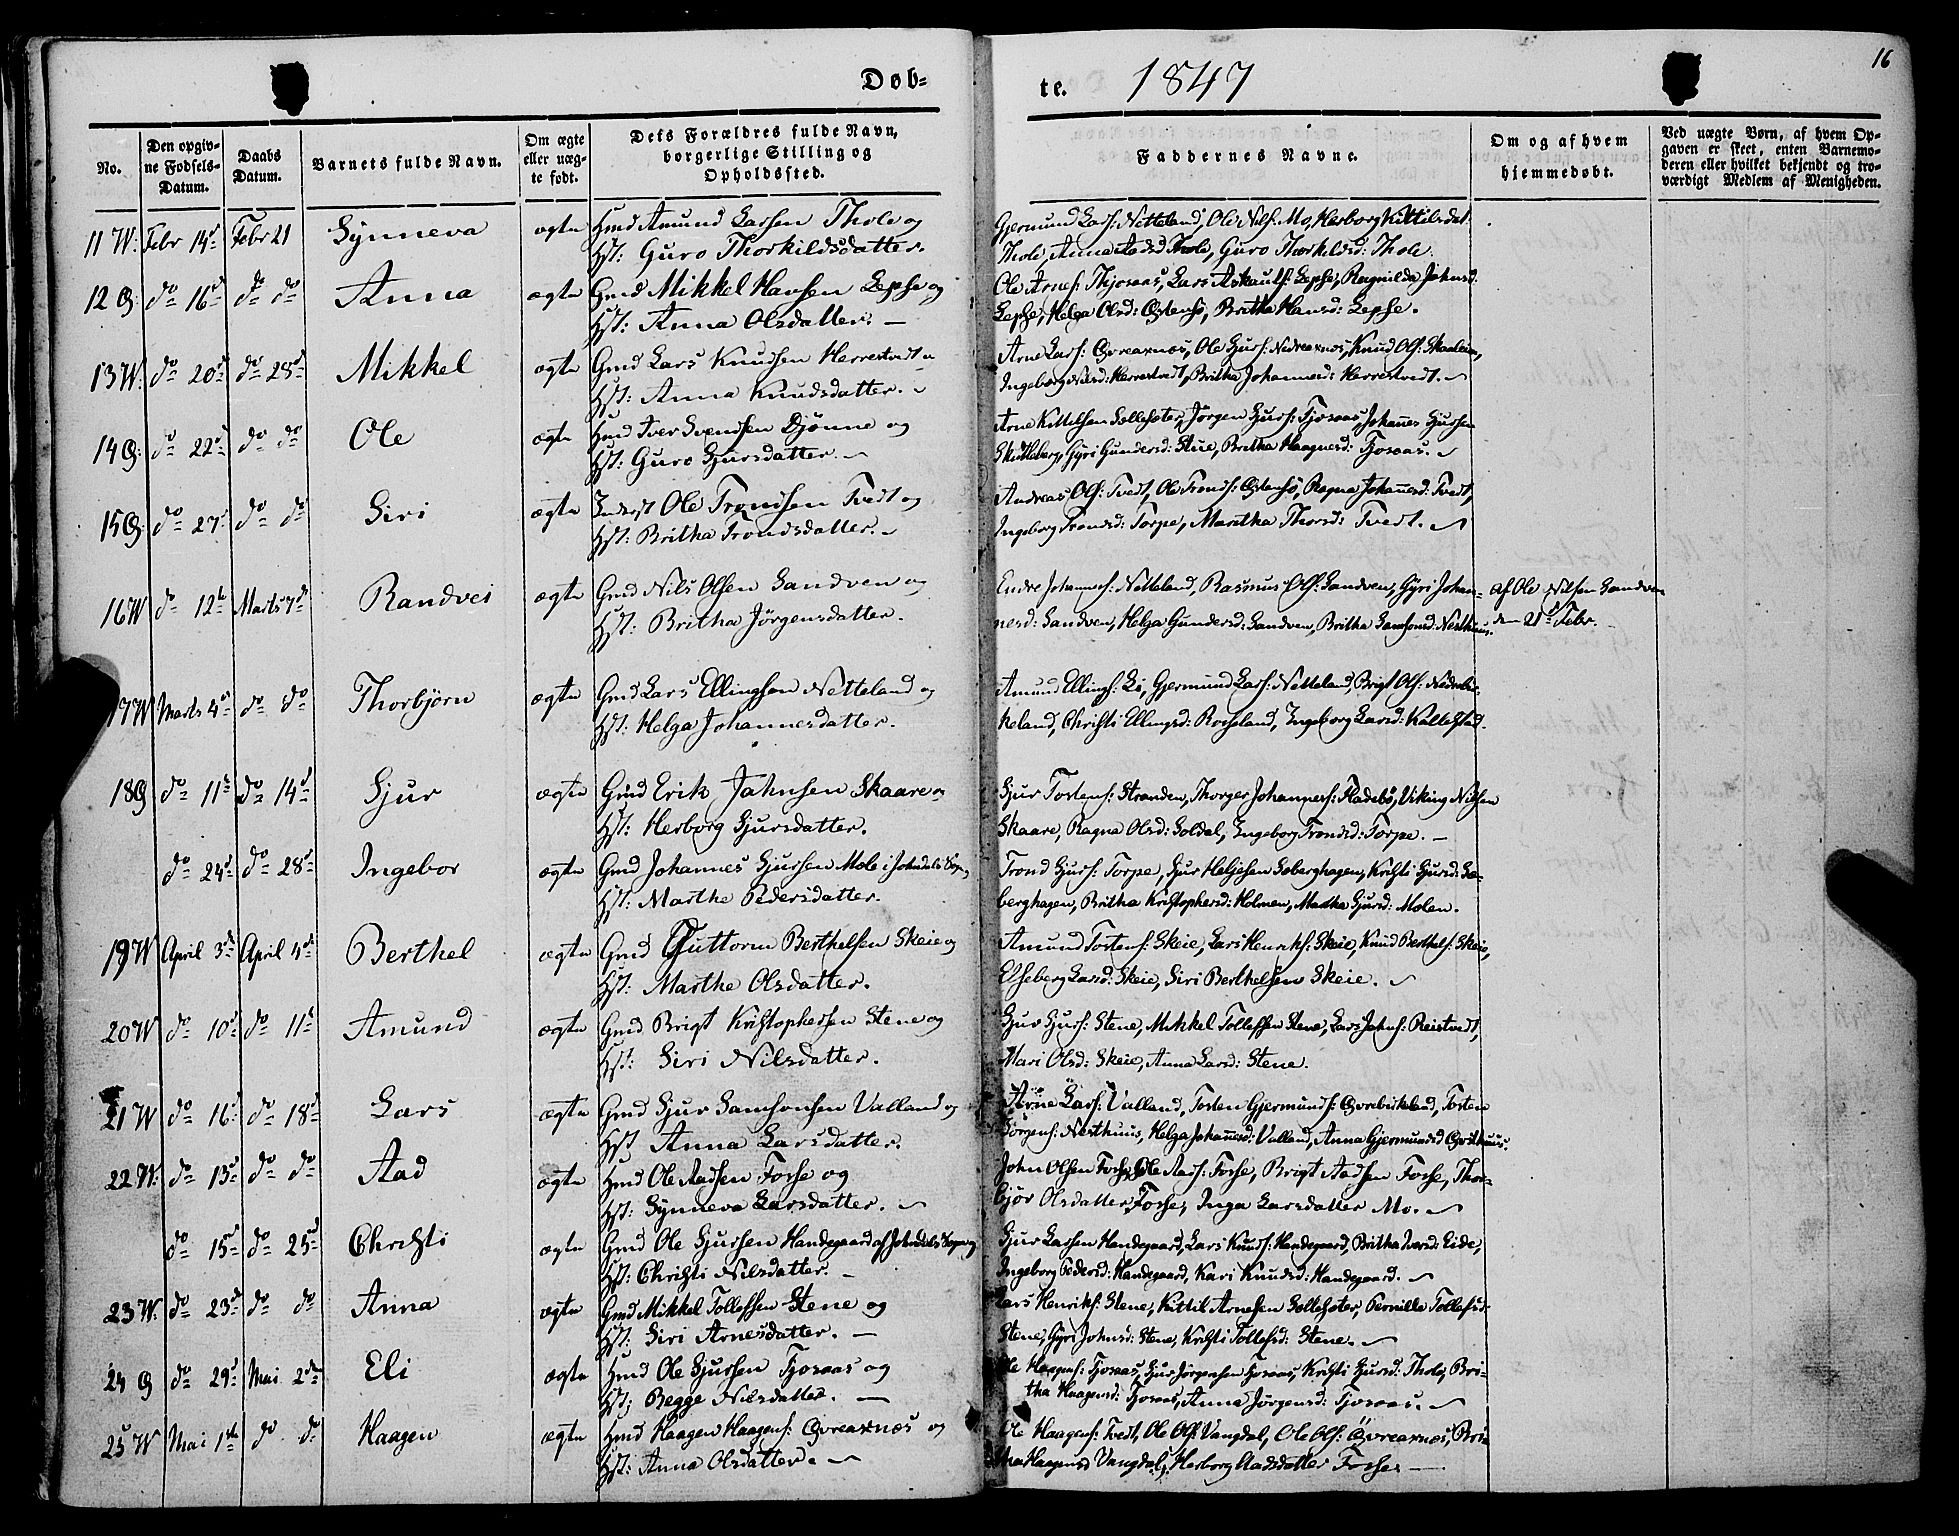 16
Døb-
te. 1847
No.
Den opgiv-
ne Fødsels-
Datum.
Daabs
Datum.
Barnets fulde Navn.
Om ægte
eller uæg-
te født.
Dets Forældres fulde Navn,
borgerlige Stilling og
Opholdssted.
Faddernes Navne.
Om og af hvem
hjemmedøbt.
Ved uægte Børn, af hvem Op-
gaven er skeet, enten Barnemo-
deren eller hvilket bekjendt og tro-
værdigt Medlem af Menigheden.
11 W: Febr 14d Febr 21 Synneva ægte Hmd Amund Larsen Thole og
Hst: Guro Thorkildsdatter.
Gjermund Lars: Netteland, Ole Nils: Mo, Herborg Kittilsdat:
Thole, Anna Aadsd Thole, Guro Thorkildsd: Thole.
12 G: do 16d do do Anna ægte Gmd Mikkel Hansen Lepse og
Hst: Anna Olsdatter. —
Ole Arnes: Thjosaas, Lars Lepse, Ragnilda Johnsd:
Lepse, Helga Olsd: Østensø, Britha Hansd: Lepse.
13 W: do 20d do 28d Mikkel ægte Gmd Lars Knudsen Herrestvedt og
Hst: Anna Knudsdatter.
Arne Lars: Øvreaxnæs, Ole Sjurs: Nedreaxnæs, Knud Ols: Skaaleim,
Ingeborg Nilsd: Herrestvedt, Britha Johannesd: Herrestvedt.
14 G: do 22d do do Ole ægte Hmd Iver Svendsen Djønne og
Hst: Guro Sjursdatter.
Arne Kittelsen Sollesæter, Jørgen Sjurs: Fjosaas, Johannes Sjursen
Skutleberg, Gyri Gundersd: Stue, Britha Haagnesd: Fjosaas.
15 G: do 27 do do Siri ægte Inderst Ole Trondsen Tvedt og
Hst: Britha Trondsdatter.
Andreas Ols: Tvedt, Ole Tronds: Østensø, Ragna Johannesd: Tvedt,
Ingeborg Tronsd: Torpe, Maritha Thorsd: Tvedt.
16 W do 12te Marts 7d Randvei ægte Gmd Nils Olsen Sandven og
Hst: Britha Jørgensdatter.
Endre Johannes: Netteland, Rasmus Ols: Sandven, Gyri Johan-
nesd: Sandven, Helga Gundersd: Sandven, Britha Samsonsd: Nesthuus.
af Ole Nilsen Sandven
den 21d Febr.
17 W Marts 4d do do Thorbjørn ægte Gmd Lars Ellingsen Netteland og
Hst: Helga Johannesdatter.
Amund Ellings: Li, Gjermund Lars: Netteland, Brigt Ols: Nedrebir-
keland, Christi Ellingsd: Rosseland, Ingeborg Larsd: Kallestad.
18 G do 11te do 14d Sjur ægte Gmd Erik Jahnsen Skaare og
Hst: Herborg Sjursdatter.
Sjur Tostens: Stranden, Thorger Johannes: Fladebø, Viking Nilsen
Skaare, Ragna Olsd: Soldal, Ingeborg Tronsd: Torpe. —
do 24d do 28d Ingebor ægte Gmd Johannes Sjursen Mole i Jondals Sogn,
Hst: Marthe Pedersdatter.
Trond Sjurs: Torpe, Sjur Heljesen Soberghagen, Kristi Sjursd: So-
berghagen, Britha Kristophersd: Holmen, Martha Sjursd: Molen.
19 W April 3d April 4d Berthel ægte Gmd Guttorm Berthelsen Skeie og
Hst: Marthe Olsdatter.
Amund Tostens: Skeie, Lars Henriks: Skeie, Knud Berthels: Skeie,
Elseberg Larsd: Skeie, Siri Berthelsen Skeie.
20 W do 10d do 11te Amund ægte Gmd Brigt Kristophersen Stene og
Hst: Siri Nilsdatter.
Sjur Sjurs: Stene, Mikkel Tollefsen Stene, Lars Jahns: Reistvedt,
Mari Olsd: Skeie, Anna Larsd: Stene.
21 W do 16d do 18d Lars ægte Gmd Sjur Samsonsen Valland og
Hst Anna Larsdatter.
Arne Lars: Valland, Tosten Gjermunds: Øvrebirkeland, Tosten
Jørgens: Nesthuus, Helga Johannesd: Valland, Anna Gjermundsd
22 W: do 13d do do Aad ægte Hmd Ole Aadsen Fosse og
Hst: Synneva Larsdatter.
John Olsen Fosse, Ole Aads: Fosse, Brigt Aadsen Fosse, Thor-
bjør Olsdatter Fosse, Inga Larsdatter Mo.
do 15d do 25d Christi ægte Gmd Ole Sjursen Handegaard af Jondals Sogn og
Hst: Christi Nilsdatter. —
Sjur Larsen Handegaard, Lars Knuds: Handegaard, Britha Iversd: Eide,
Ingeborg Pedersd: Handegaard, Kari Knudsd: Handegaard.
23 W. do 23d do do Anna ægte Gmd Mikkel Tollefsen Stene og
Hst: Siri Arnesdatter. —
Lars Henriks: Stene, Kittil Arnesen Sollesæter, Pernille Tollefsd:
Stene, Gyri Johnsd: Stene, Kristi Tollefsd: Stene.
24 G do 29d Mai 2den Eli ægte Hmd Ole Sjursen Fjosaas og
Hst: Begge Nilsdatter. —
Ole Haagens: Fjosaas, Sjur Jørgensen Fjosaas, Kristi Sjursd: Thole, Bri-
tha Haagensd: Fjosaas, Anna Jørgensd: Fjosaas.
25 W Mai 1ste do do Haagen ægte Hmd Haagen Haagens: Øvreaxnæs og
Hst: Anna Olsdatter.
Ole Haagens: Tvedt, Ole Ols: Vangdal, Ole Ols: Øvreaxnæs, Bri-
tha Haagensd Vangdal, Herborg Aadsdatter Fosse. —